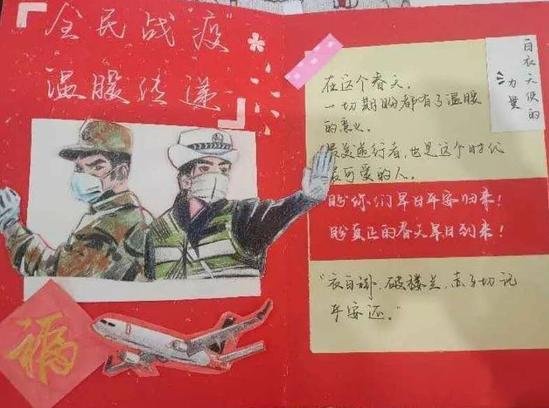 全民战疫
温暖传递
福
白衣天使的
力量
在这个春天,
一切期盼都有了温暖
的意义。
最美逆行者,也是这个时代
最可爱的人。
盼你们早日平安归来!
盼真正的春天早日到来!
"衣白褂,破楼兰,赤子切记
平安还。"